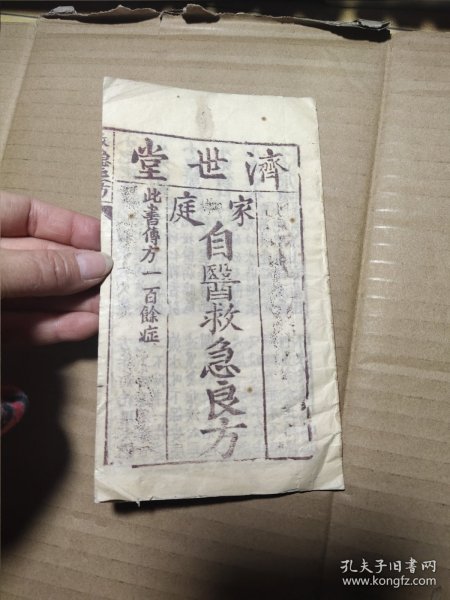 濟世堂
家庭
自醫救急良方
此書傳方一百餘症
孔夫子旧书网
www.kongfz.com